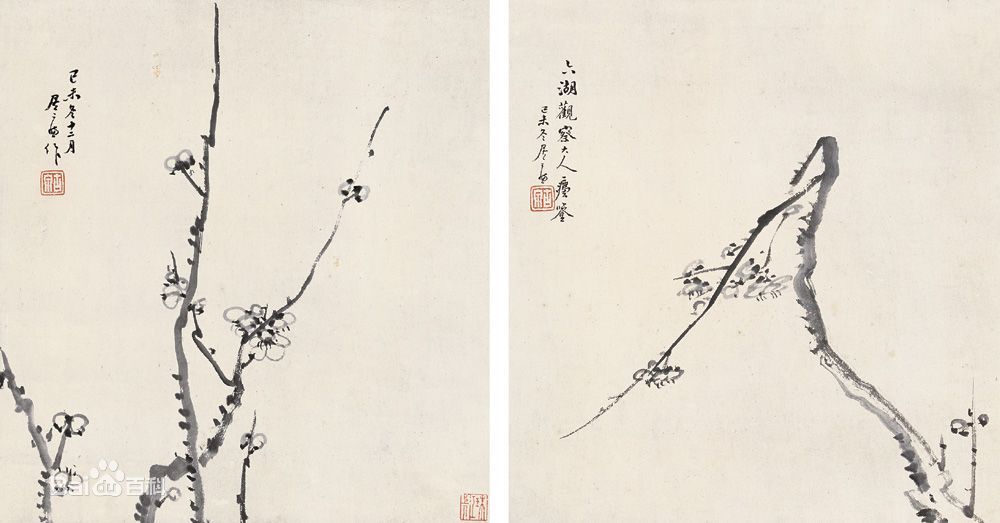 己未冬十二月
居廉作
六湖觀察大人鑒
己未冬居廉
Bai百科